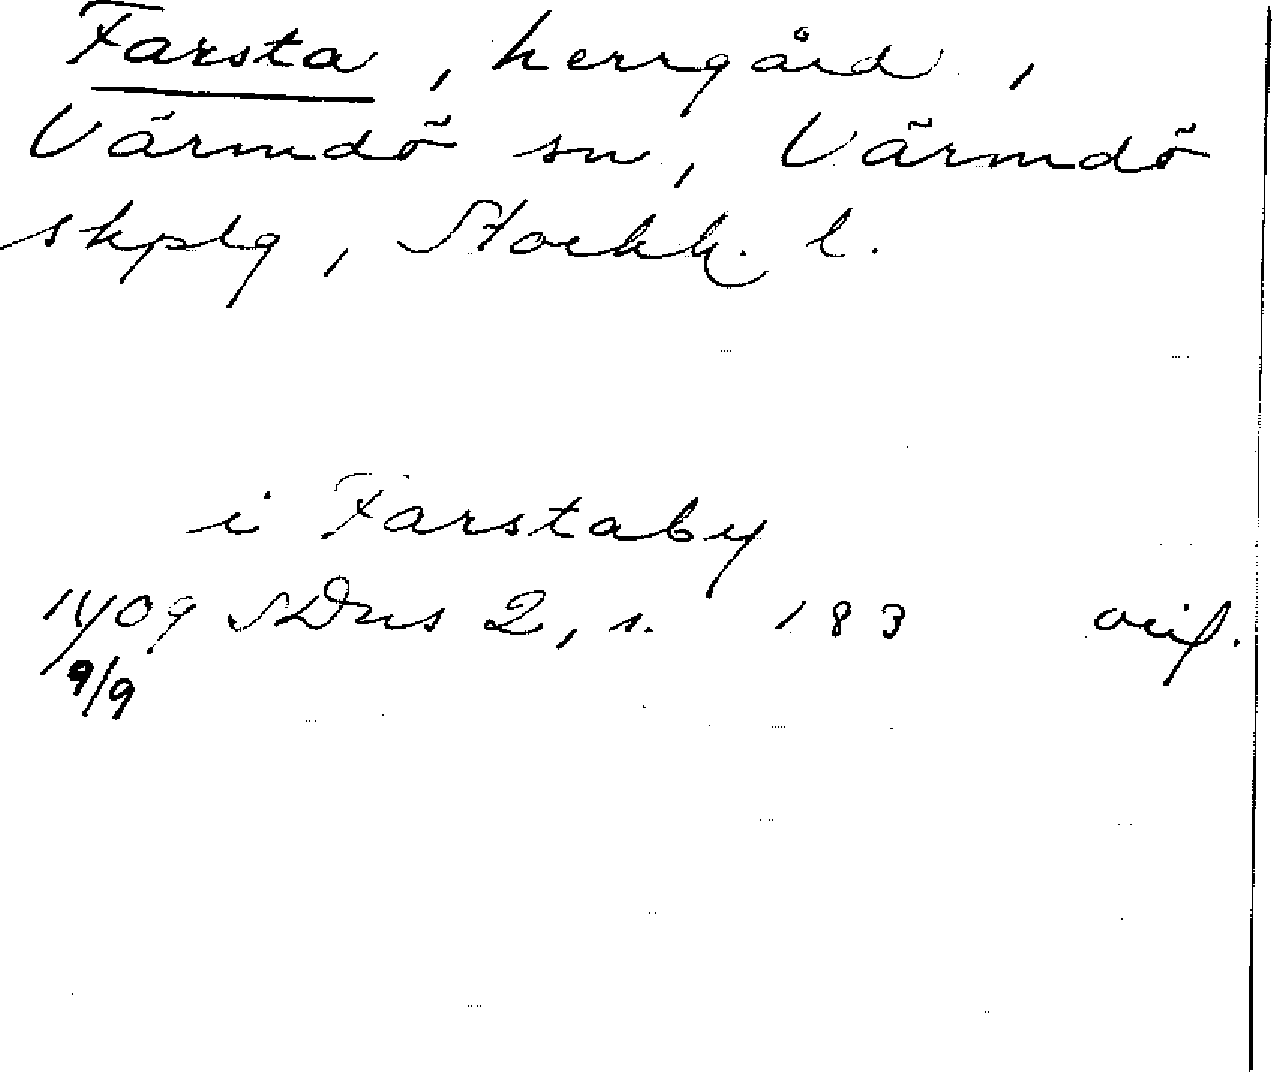 Farsta, herrgård,
Värmdö sn, Värmdö
skplg, Stockh. l.
i Farstaby
1409 SDns 2, s. 183 orig.
9/9